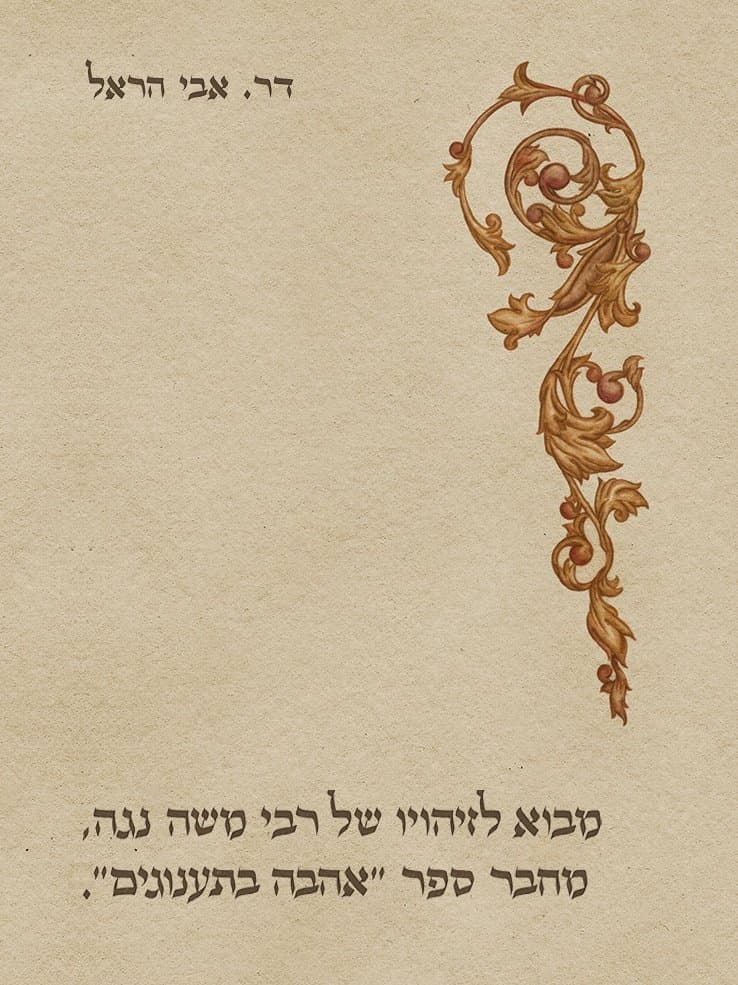 דר. אבי הראל
מבוא לזיהויו של רבי משה נגה,
מחבר ספר "אהבה בתענוגים".